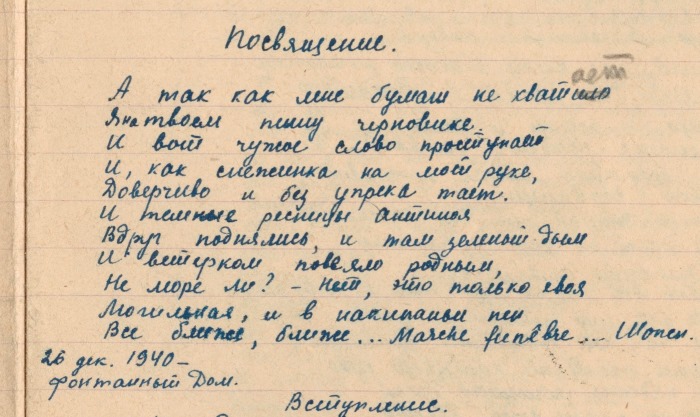 Посвящение.
А так как мне бумаги не хватило ает
Я на твоем пишу черновике.
И вот чужое слово проступает
И, как снежинка на моей руке,
Доверчиво и без упрека тает.
И темные ресницы Антиноя
Вдруг поднялись, и там зеленый дым
И ветерком повеяло родным,
Не море ли? – Нет, это только хвоя
Могильная, и в накипаньи пен
Все ближе, ближе... Marche funèbre... Шопен.
26 дек. 1940 –
Фонтанный Дом.
Вступление.